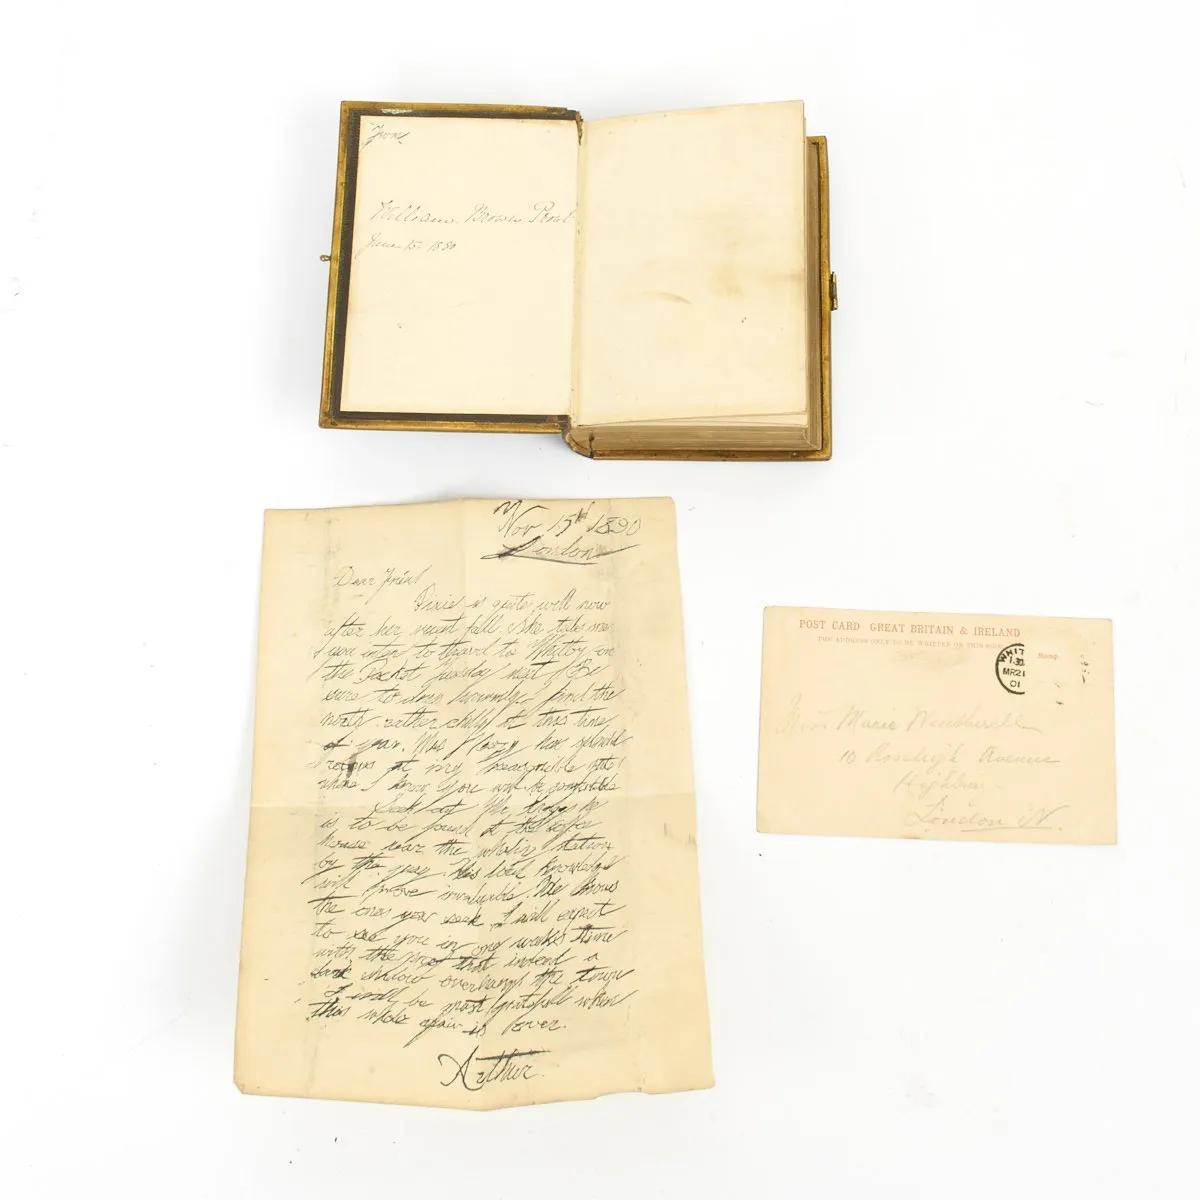 From
William Brown Prout
June 15 1880
Nov 15th 1890
London
Dear Friend
Pixie is quite well now
after her recent fall. She tells me
you intend to travel to Whitby on
the Packet Tuesday next / Be
sure to dress warmly, I find the
north rather chilly at this time
of year. Mrs has splendid
rooms at very reasonable rates
where I know you will be comfortable
Seek out Mr he
is to be found at the coffee
house near the whalin station
by the quay. His local knowledge
will prove invaluable. He knows
the ones you seek. I will expect
to see you in one weeks time
with the proof that indeed a
dark shadow overhangs the town
I will be most gratefull when
this whole affair is over.
Arthur.
POST CARD GREAT BRITAIN & IRELAND
THE ADDRESS ONLY TO BE WRITTEN ON THIS SIDE
Stamp.
WHIT
1.30
MR21
01
Miss Marie Weatherell
10 Roseleigh Avenue
Highbury
London N.